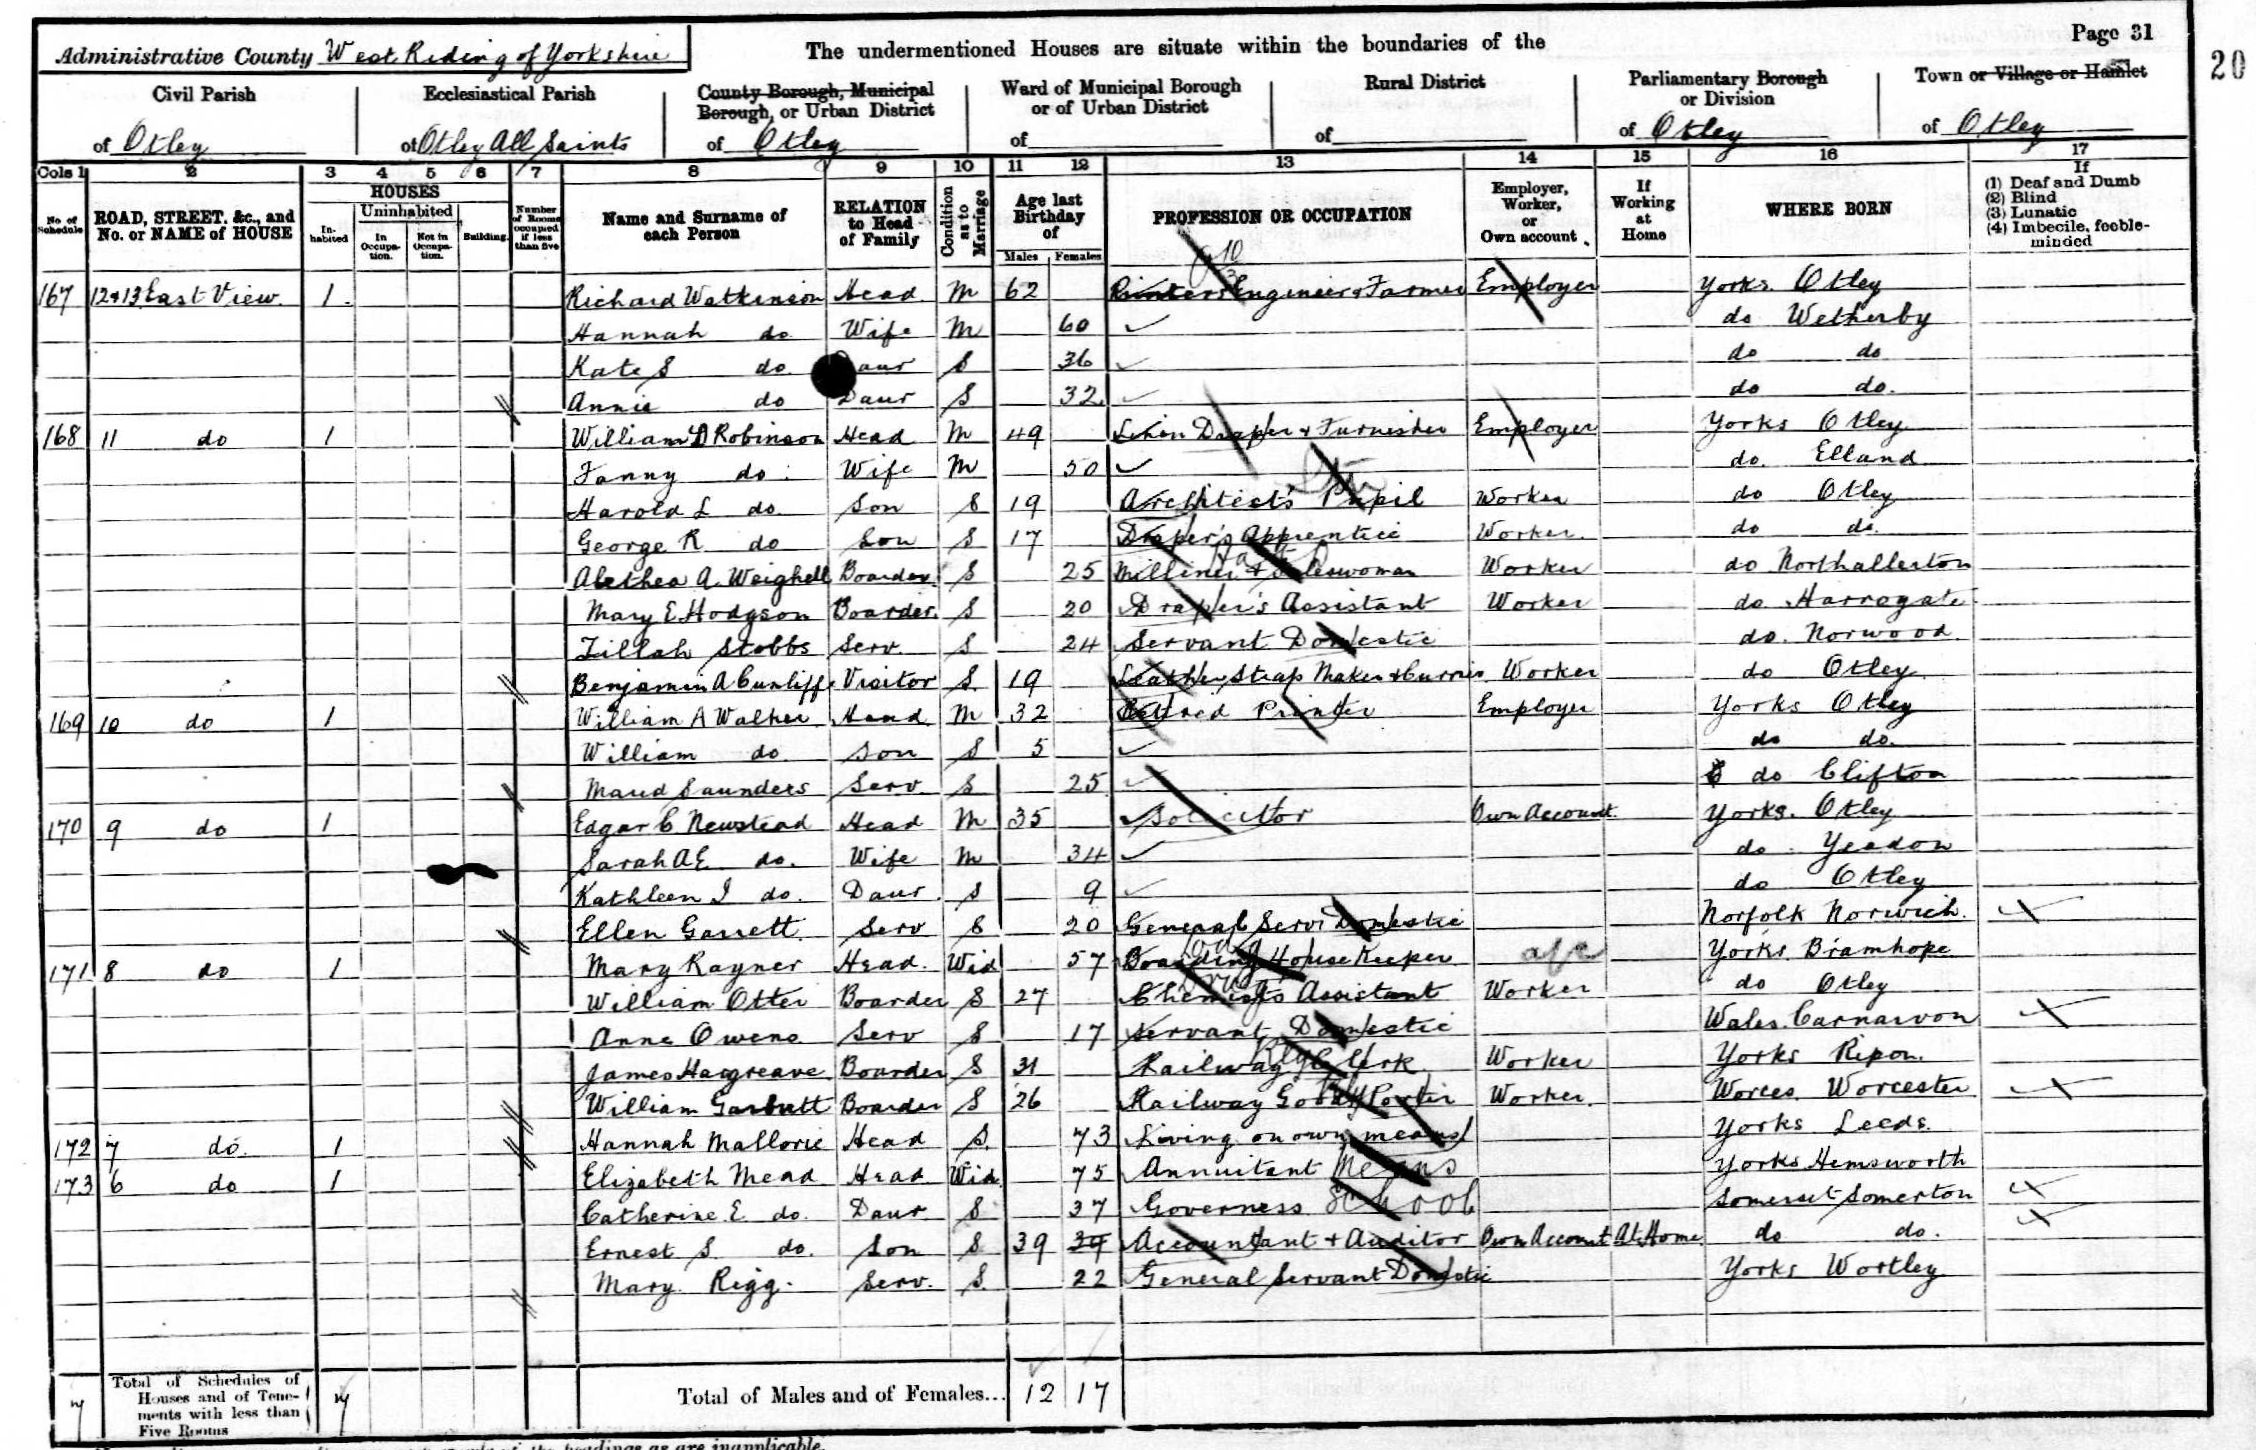 Page 31
20
Administrative County West Riding of Yorkshire
The undermentioned Houses are situate within the boundaries of the
Civil Parish of Otley
Ecclesiastical Parish of Otley All Saints
County Borough, Municipal Borough, or Urban District of Otley
Ward of Municipal Borough or of Urban District of
Rural District of
Parliamentary Borough or Division of Otley
Town or Village or Hamlet of Otley
Cols 1 2 3 4 5 6 7 8 9 10 11 12 13 14 15 16 17
No. of Schedule
ROAD, STREET, &c., and No. or NAME of HOUSE
HOUSES
In-habited
Uninhabited
In Occupa-tion.
Not in Occupa-tion.
Building.
Number of Rooms occupied if less than five
Name and Surname of each Person
RELATION to Head of Family
Condition as to Marriage
Age last Birthday of
Males Females
PROFESSION OR OCCUPATION
Employer, Worker, or Own account
If Working at Home
WHERE BORN
If
(1) Deaf and Dumb
(2) Blind
(3) Lunatic
(4) Imbecile, feeble-minded
167 12+13 East View. 1 Richard Watkinson Head M 62 Printers Engineer & Farmer Employer Yorks. Otley
Hannah do Wife M 60 do Wetherby
Kate S do Daur S 36 do do
Annie do Daur S 32 do do.
168 11 do 1 William D Robinson Head M 49 Linen Draper + Furnisher Employer Yorks Otley
Fanny do Wife M 50 do. Elland
Harold L do Son S 19 Architect's Pupil Worker do Otley
George R do Son S 17 Draper's Apprentice Worker. do do.
Alethea A. Weighell Boarder S 25 Milliner & Saleswoman Worker do Northallerton
Mary E Hodgson Boarder. S 20 Draper's Assistant Worker do Harrogate
Tillah Stobbs Serv S 24 Servant Domestic do. Norwood
Benjamin A Cunliffe Visitor S. 19 Leather Strap Maker & Currier Worker do Otley
169 10 do 1 William A Walker Head M 32 Retired Printer Employer Yorks Otley
William do. Son S 5 do do.
Maud Saunders Serv S 25 do Clifton
170 9 do 1 Edgar C Newstead Head M 35 Solicitor Own Account. Yorks. Otley
Sarah A E do. Wife M 34 do Yeadon
Kathleen I do. Daur. S 9 do Otley
Ellen Garrett Serv S 20 General Serv Domestic Norfolk Norwich.
171 8 do 1 Mary Rayner Head. Wid 57 Boarding House Keeper Yorks. Bramhope
William Otter Boarder S 27 Chemist's Assistant Worker do Otley
Drug
Anne Owens Serv S 17 Servant Domestic Wales. Carnarvon
James Hargreave Boarder S 31 Railway Clerk Worker Yorks Ripon.
William Garbutt Boarder S 26 Railway Goods Porter Worker. Worces. Worcester
172 7 do. 1 Hannah Mallorie Head S. 73 Living on own means Yorks Leeds.
173 6 do 1 Elizabeth Mead Head Wid 75 Annuitant Means Yorks Hemsworth
Catherine E. do. Daur S 37 Governess School Somerset Somerton
Ernest S. do. Son S 39 39 Accountant + Auditor Own Account At Home. do do.
Mary Rigg. Serv. S. 22 General Servant Domestic Yorks Wortley
7 Total of Schedules of Houses and of Tene-ments with less than Five Rooms 7 Total of Males and of Females... 12 17